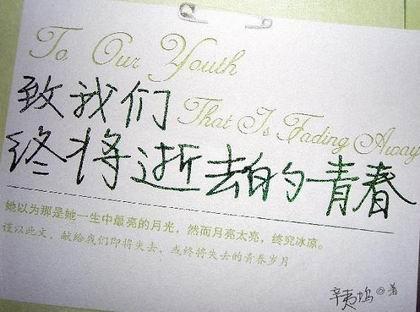 To Our Youth
致我们
That Is Fading Away
终将逝去的青春
她以为那是她一生中最亮的月光，然而月亮太亮，终究冰凉。
谨以此文，献给我们即将失去、或终将失去的青春岁月
辛夷坞◎著